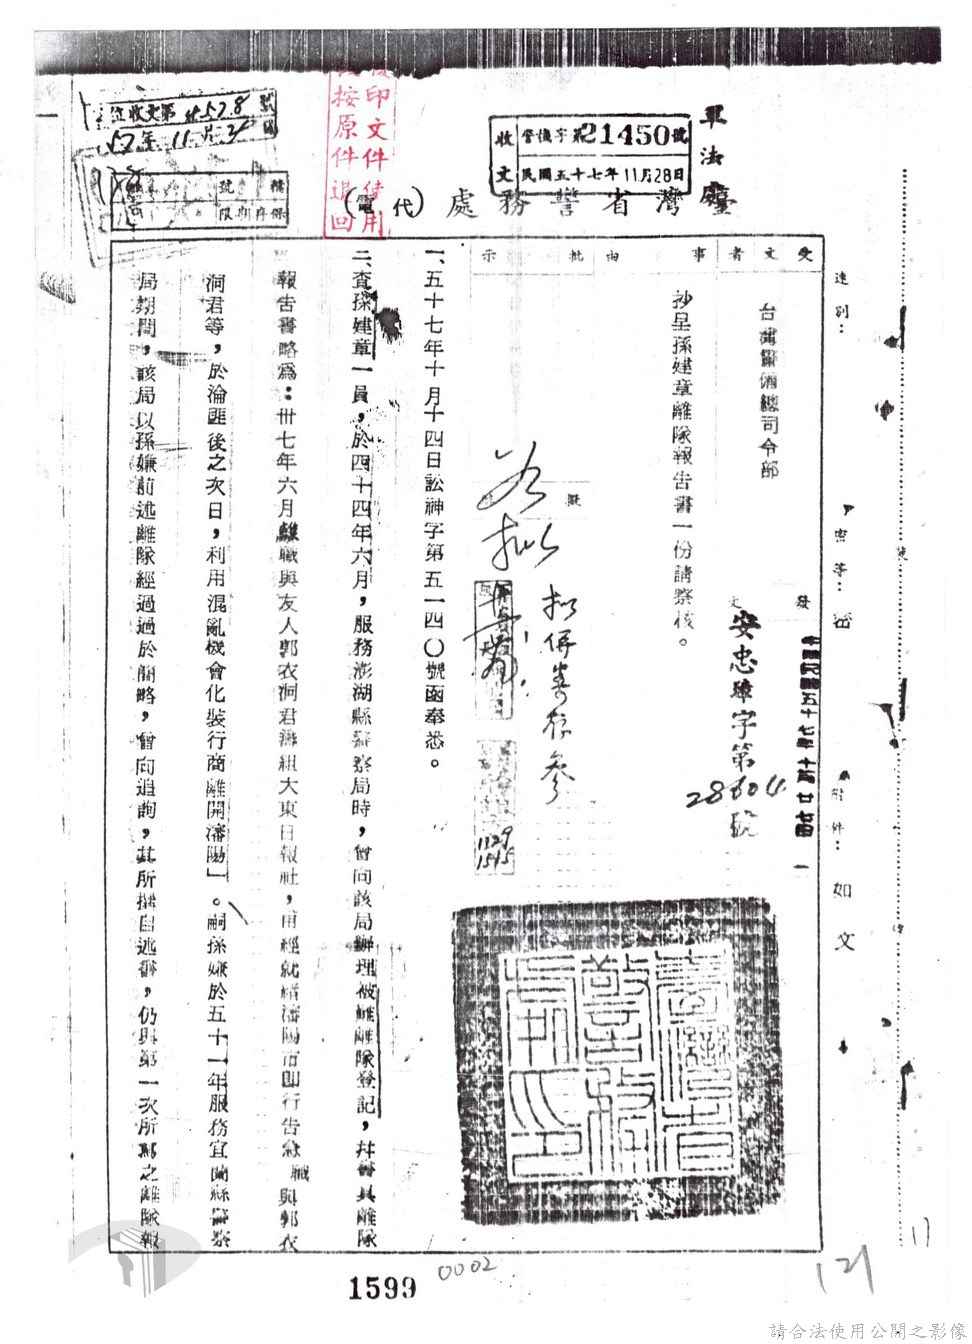 復印文件使用
後按原件退回
位收文第 4578 號
57年11月2
檔號
保存期限
收文 警檢字第21450號
民國五十七年11月28日
軍法處
臺灣省警務處（代電）
速別：
密等：密
附件：如文
受文者
事由
批示
擬
台灣警備總司令部
發文
中華民國五十七年十一月廿七日
安忠璋字第28604號
抄呈孫建章離隊報告書一份請察核。
拟併卷存參
1129
1545
臺灣省警務處印
一、五十七年十月十四日訟神字第五一四〇號函奉悉。
二、查孫建章一員，於四十四年六月，服務澎湖縣警察局時，曾向該局辦理被離離隊登記，并書具離隊
報告書略為：卅七年六月職與友人郭衣洞君等組大東日報社，甫經就緒瀋陽市即行告急 職與郭衣
洞君等，於淪匪後之次日，利用混亂機會化裝行商離開瀋陽」。嗣孫嫌於五十一年服務宜蘭縣警察
局期間，該局以孫嫌前述離隊經過過於簡略，曾向追詢，其所撰自述書，仍與第一次所寫之離隊報
1599
0002
121
11
請合法使用公開之影像